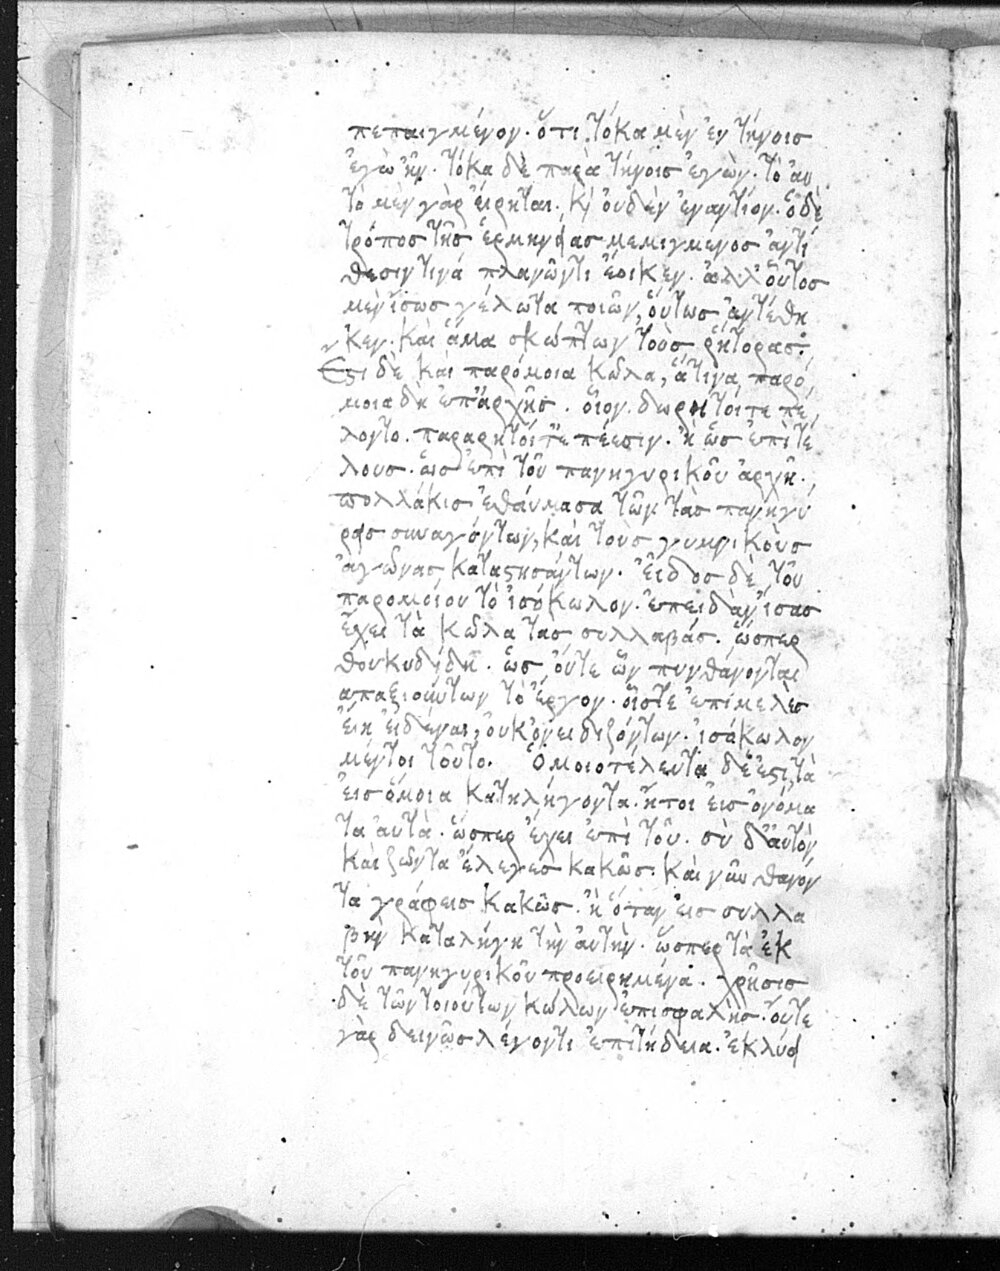 πεπαιγμένον· ὅτι τόκα μὲν ἐν τήνοις
ἐγὼ ἦν· τόκα δὲ παρὰ τήνοις ἐγὼν· τὸ αὐ
τὸ μὲν γὰρ εἴρηται· κὶ οὐδὲν ἐναντίον· ὁ δὲ
τρόπος τῆς ἑρμηνείας μεμιγμενος ἀντί
θεσιν τινὰ πλανῶντι ἔοικεν· ἀλλ' οὗτος
μὲν ἴσως γέλωτα ποιῶν, οὕτως ἀντέθη
κεν· καὶ ἅμα σκώπτων τοὺς ῥήτορας·
Ἔστι δὲ καὶ παρόμοια κῶλα, ἅτινα παρό
μοια δὴ ἐπ' ἀρχῆς· οἷον· δωρητοί τε πέ
λοντο· παραρητοί τε πέεσιν· ἢ ὡς ἐπὶ τέ
λους· ὡς ἐπὶ τοῦ πανηγυρικοῦ ἀρχῆ·
πολλάκις ἐθαύμασα τῶν τὰς πανηγύ
ρεις συναγόντων, καὶ τοὺς γυμνικοὺς
ἀγῶνας καταστησάντων· εἶδος δὲ τοῦ
παρομοίου τὸ ἰσόκωλον· ἐπειδὰν ἴσας
ἔχει τὰ κῶλα τας συλλαβάς· ὥσπερ
θουκυδίδῃ· ὡς οὔτε ὧν πυνθάνονται
απαξιούντων τὸ ἔργον· οἷς τε ἐπιμελὲς
εἴη εἰδέναι, οὐκ ὀνειδιζόντων· ἰσόκωλον
μέντοι τοῦτο· Ὁμοιοτέλευτα δέ ἐστι τὰ
εἰς ὅμοια καταλήγοντα· ἤτοι εἰς ὀνόμα
τα αὐτὰ· ὥσπερ ἔχει ἐπὶ τοῦ· σὺ δ' αὐτὸν
καὶ ζῶντα ἔλεγες κακῶς· καὶ νῦν θανόν
τα γράφεις κακῶς· ἢ ὅταν εἰς συλλα
βὴν καταλήγῃ τὴν αὐτὴν· ὥσπερ τὰ ἐκ
τοῦ πανηγυρικοῦ προειρημένα· χρῆσις
δὲ τῶν τοιούτων κώλων ἐπισφαλὴς· οὔτε
γὰρ δεινῶς λέγοντι ἐπιτήδεια· ἐκλύει